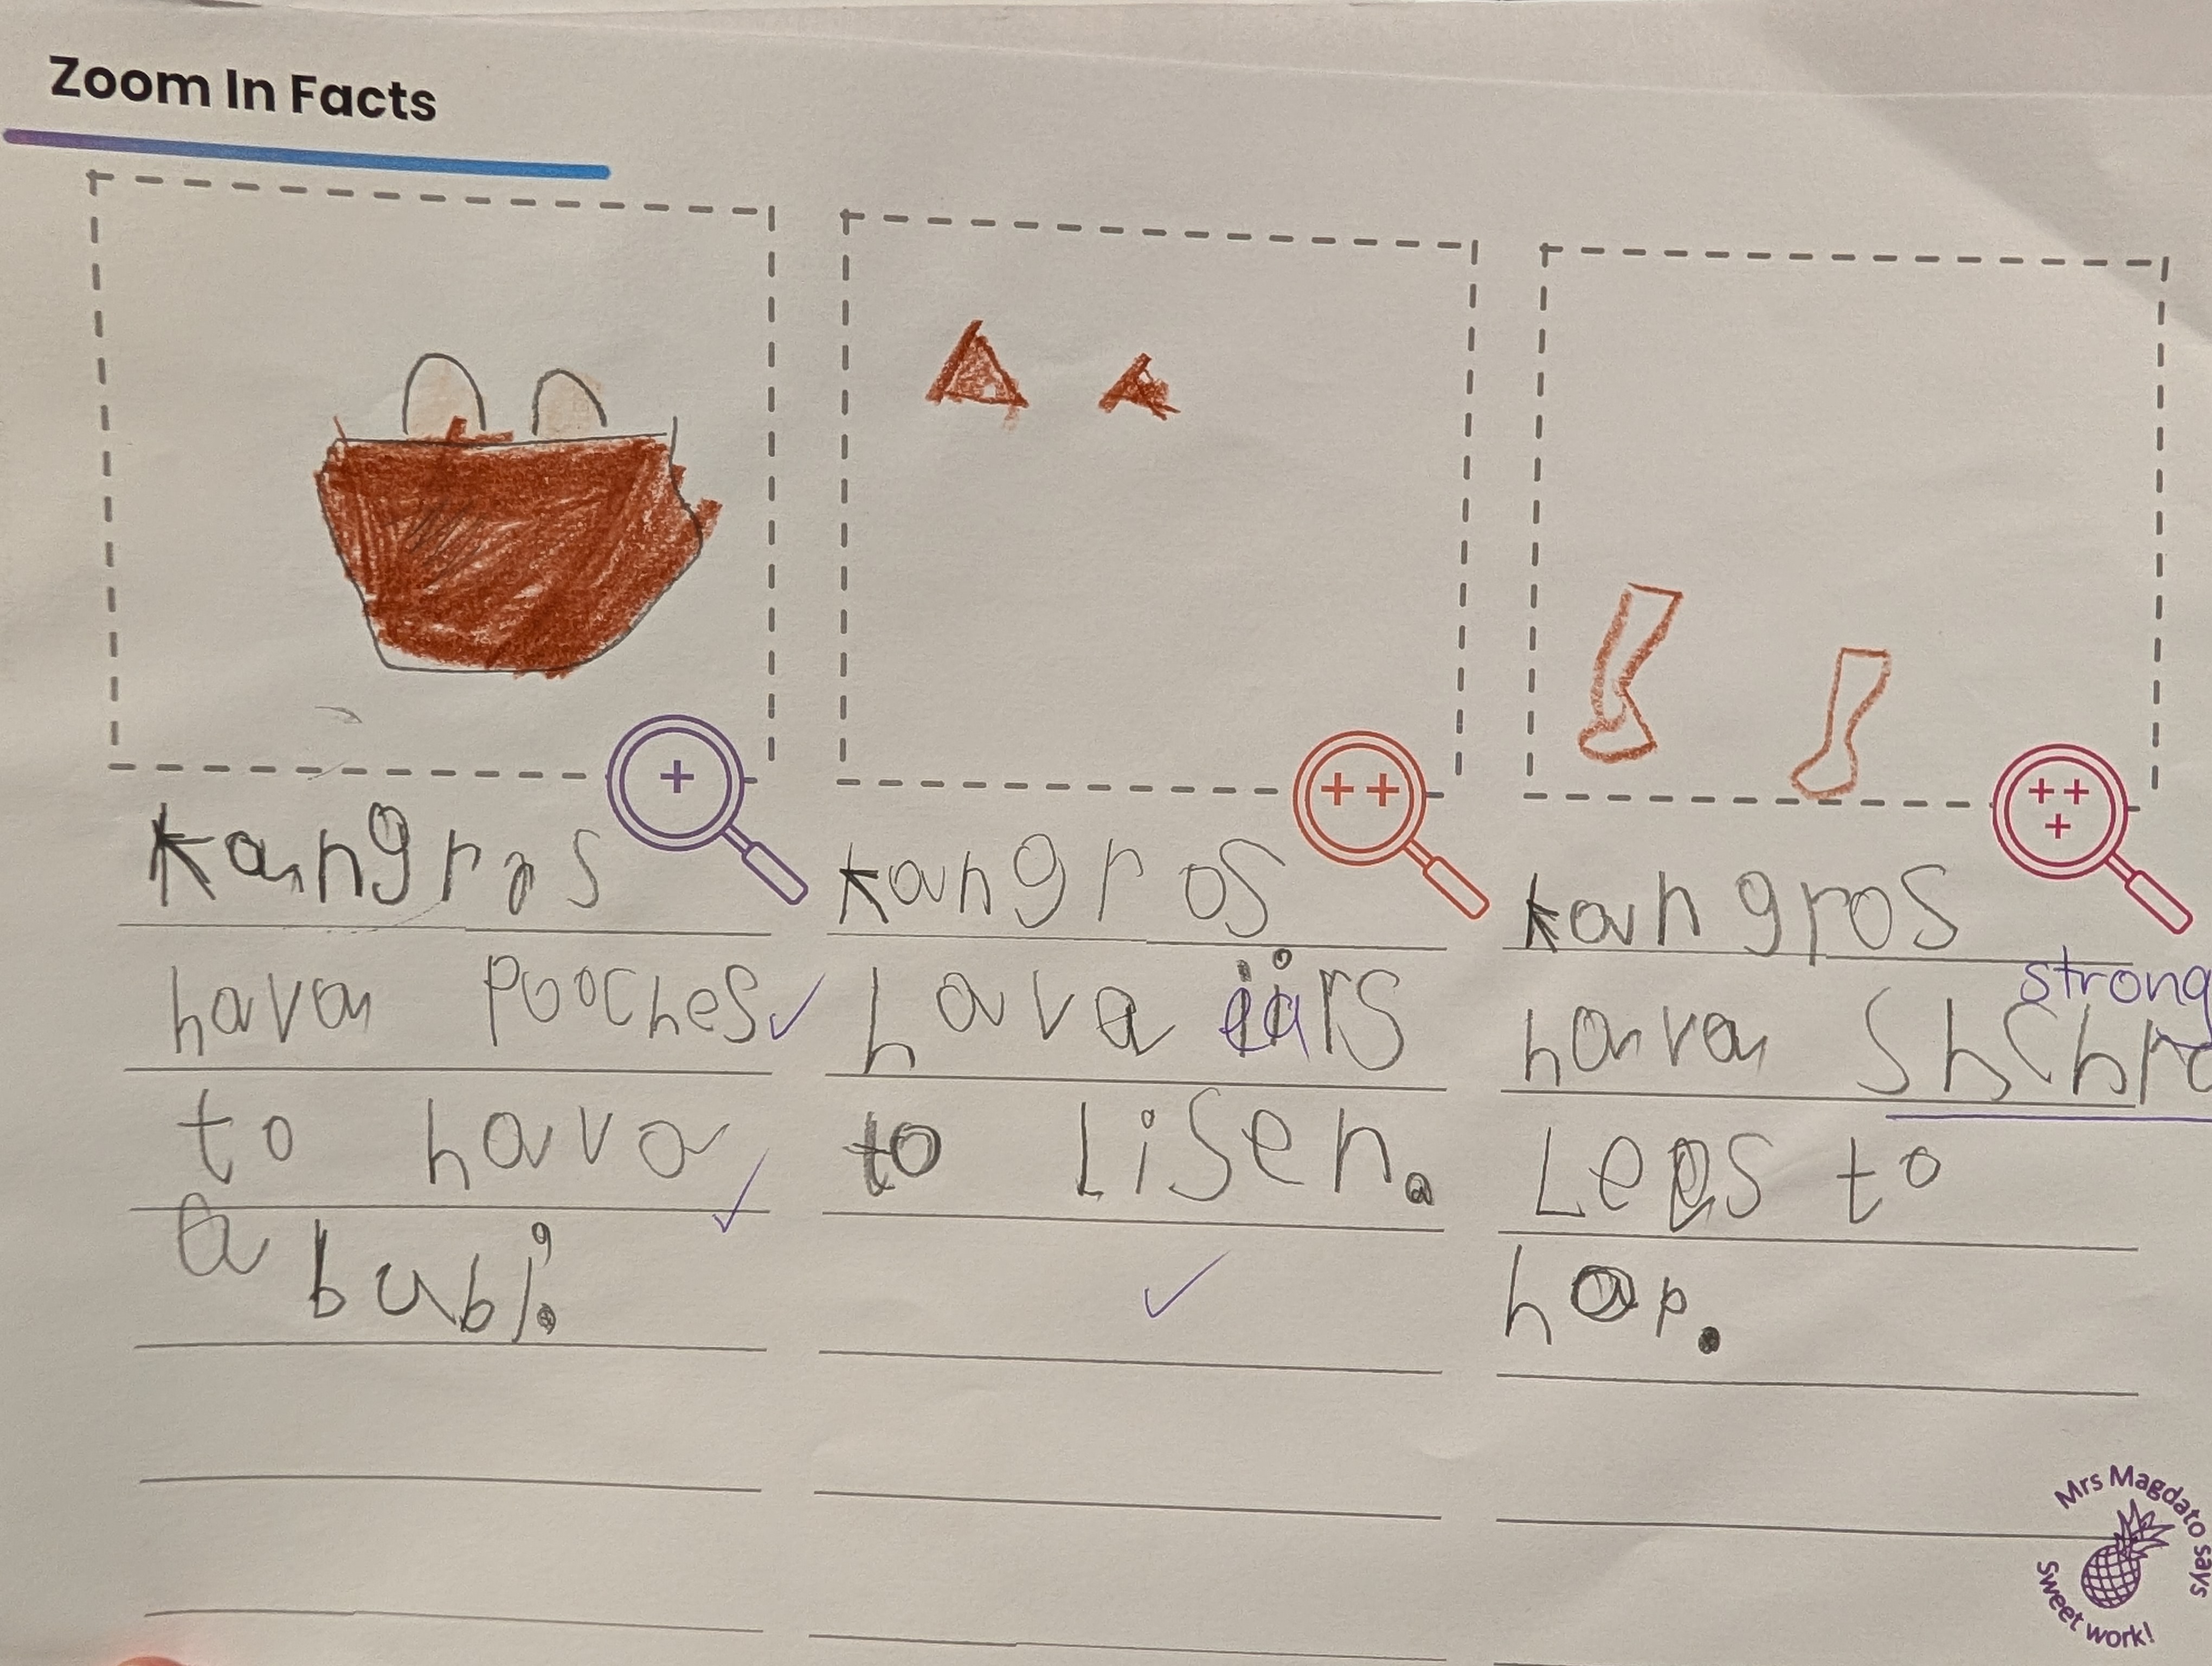 Zoom In Facts
kangros
hava pooches
to hava
a bubi.
kangros
hava ears
to Lisen.
kangros
strong
hava
Legs to
hop.
Mrs Magdato says
sweet work!